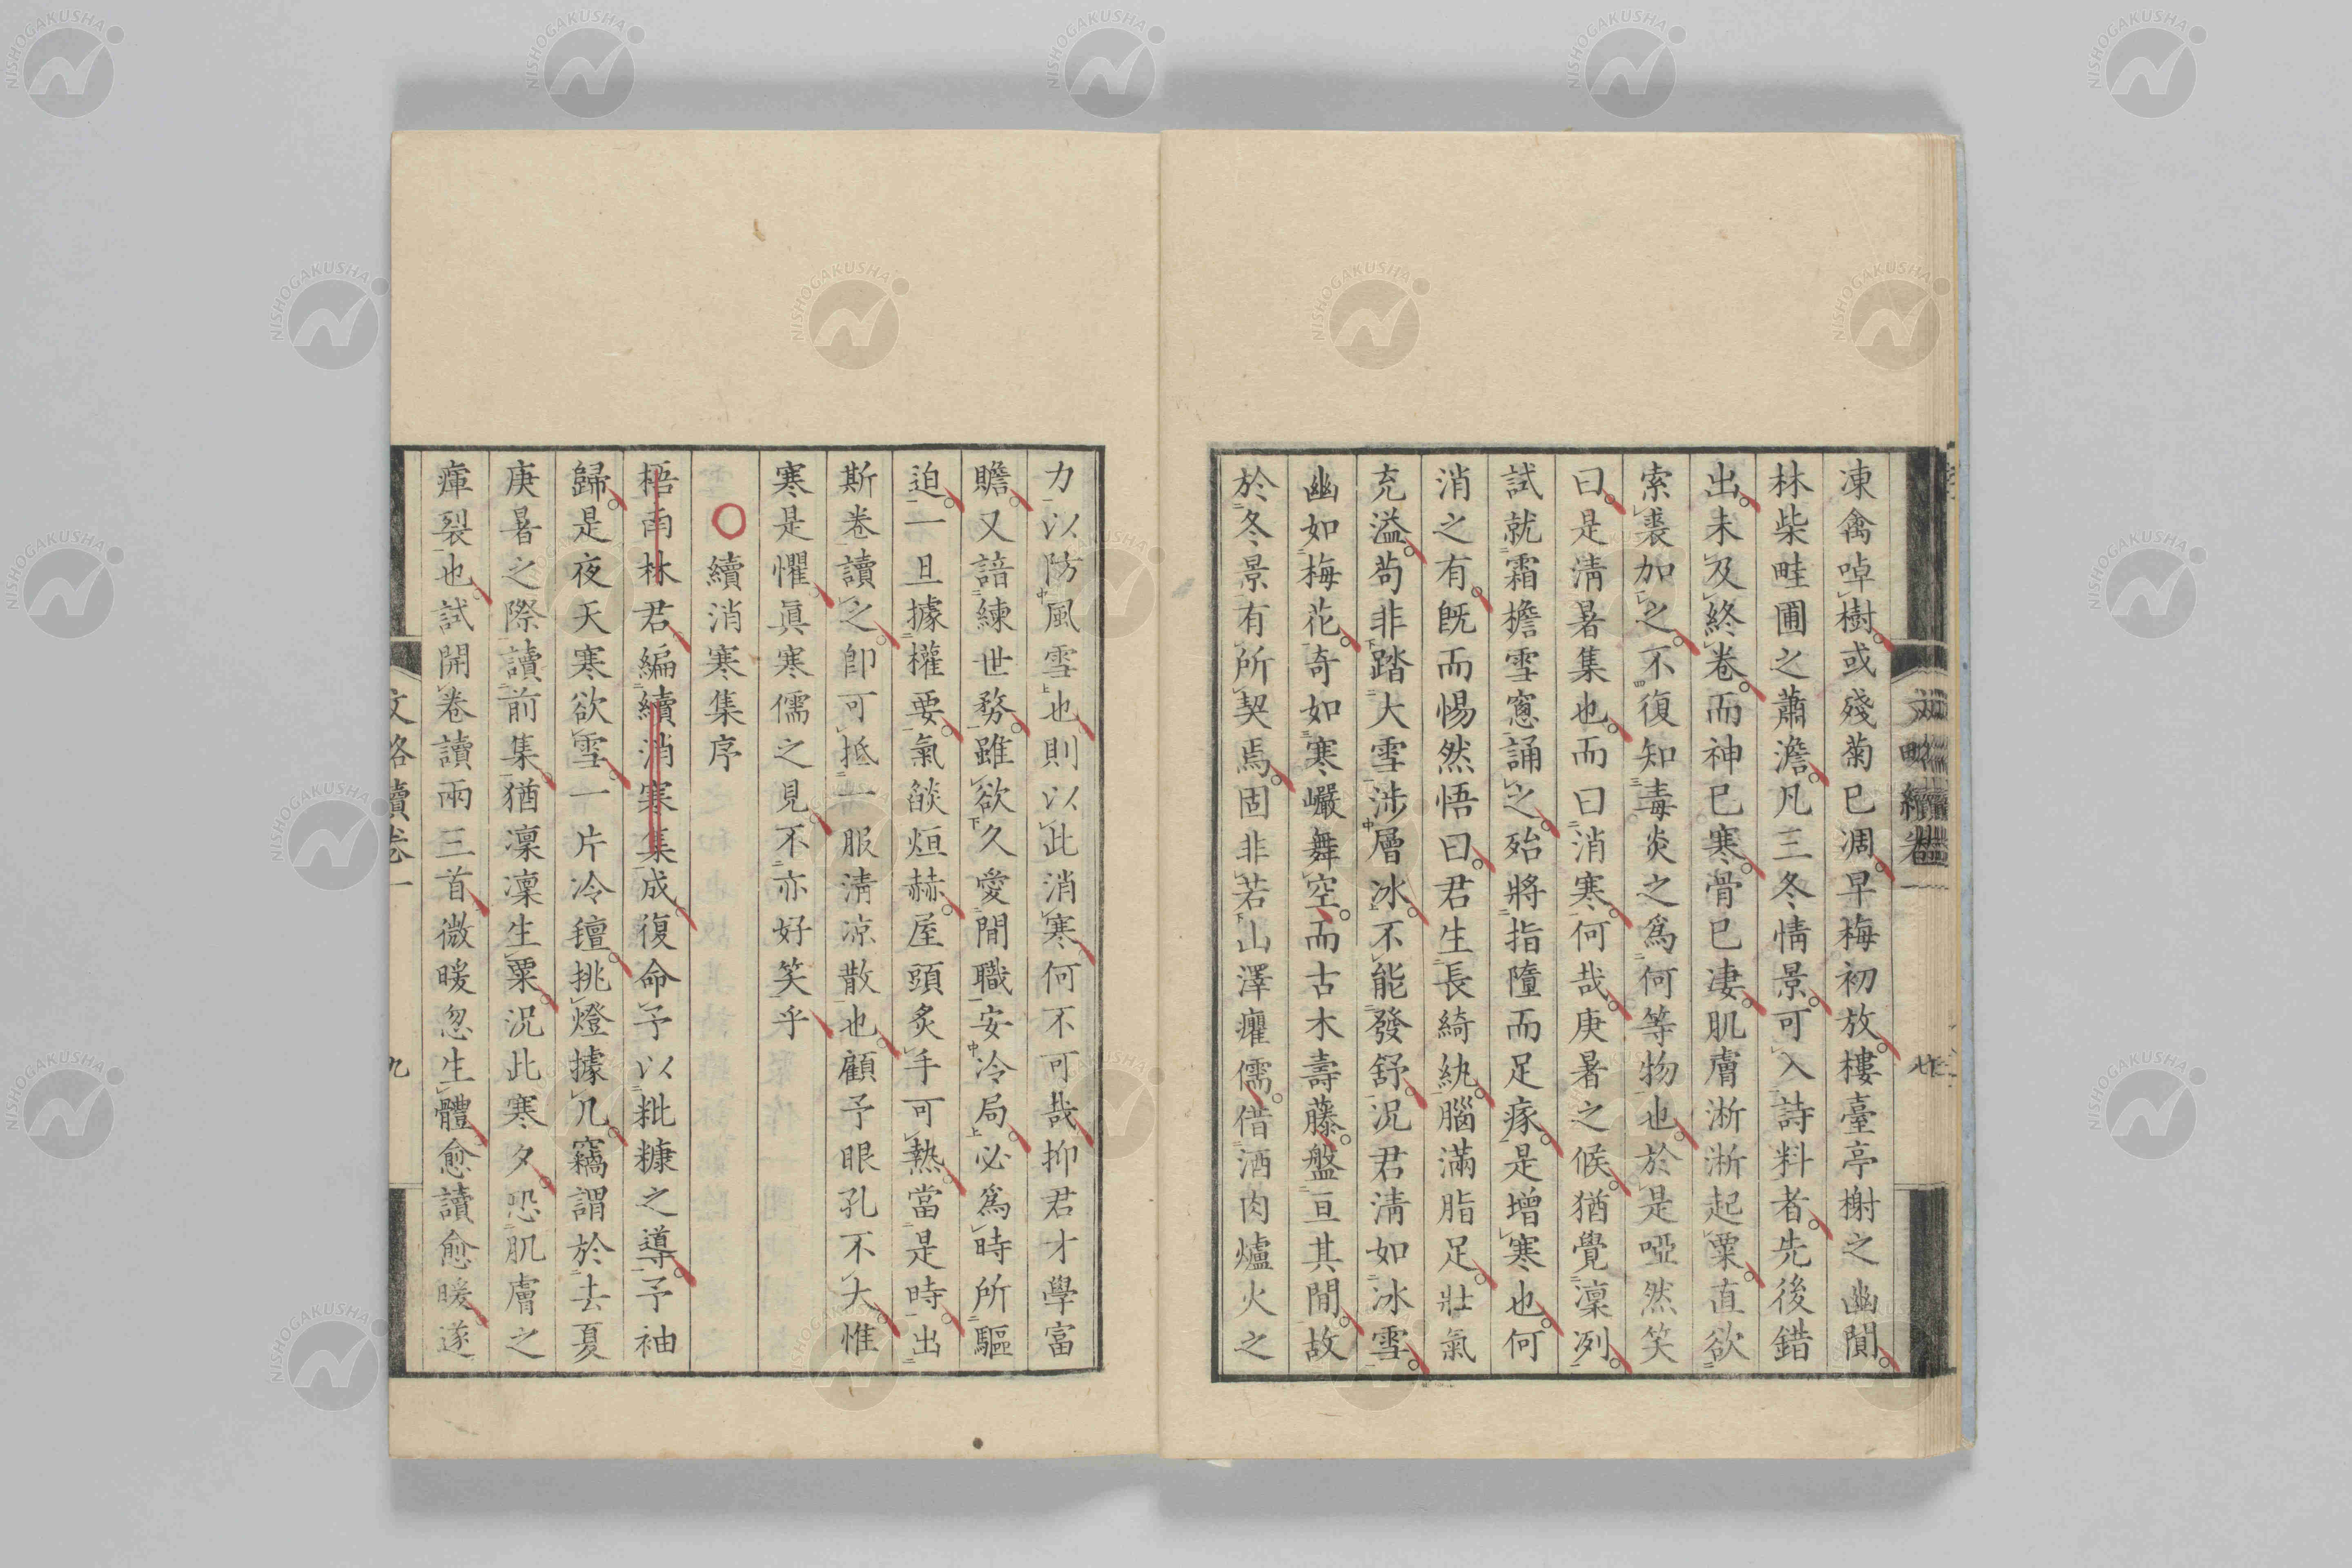 凍禽啅樹或殘菊已凋早梅初放樓臺亭榭之幽閒
林柴畦圃之蕭澹凡三冬情景可入詩料者先後錯
出未及終卷而神已寒骨已凄肌膚淅淅起粟直欲
索裘加之不復知毒炎之爲何等物也於是啞然笑
曰是淸暑集也而曰消寒何哉庚暑之候猶覺凜冽
試就霜檐雪窻誦之殆將指墮而足瘃是增寒也何
消之有旣而惕然悟曰君生長綺紈腦滿脂足壯氣
充溢苟非踏大雪涉層冰不能發舒況君淸如冰雪
幽如梅花奇如寒巗舞空而古木壽藤盤亘其閒故
於冬景有所契焉固非若山澤癯儒借酒肉爐火之
力以防風雪也則以此消寒何不可哉抑君才學富
贍又諳練世務雖欲久愛閒職安冷局必爲時所驅
迫一旦據權要氣燄烜赫屋頭炙手可熱當是時出
斯卷讀之卽可抵一服淸凉散也顧予眼孔不大惟
寒是懼眞寒儒之見不亦好笑乎
續消寒集序
梧南林君編續消寒集成復命予以粃糠之導予袖
歸是夜天寒欲雪一片冷氊挑燈據几竊謂於去夏
庚暑之際讀前集猶凜凜生粟況此寒夕恐肌膚之
瘒裂也試開卷讀兩三首微暖忽生體愈讀愈暖遂
文略續卷一
九
NISHOGAKUSHA